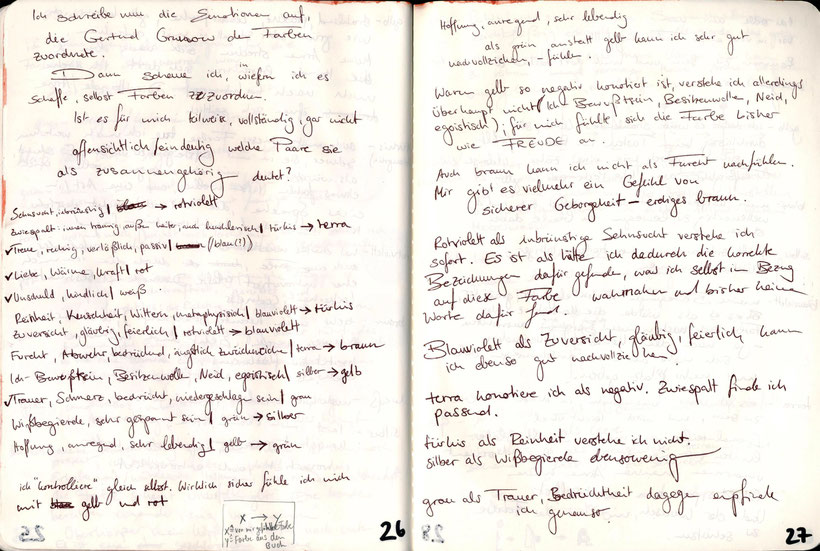 Ich schreibe nun die Emotionen auf,
die Gertrud Grunow den Farben
zuordnete.
Dann schaue ich, inwiefern ich es
schaffe, selbst Farben zuzuordnen.
Ist es für mich teilweise, vollständig, gar nicht
offensichtlich/eindeutig welche Paare sie
als zusammengehörig deutet?
Sehnsucht, inbrünstig | → rotviolett
Zwiespalt, innen traurig außen heiter, auch heuchlerisch | türkis → terra
✓ Treue, ruhig, verläßlich, passiv | (blau(?))
✓ Liebe, Wärme, Kraft | rot
✓ Unschuld, kindlich | weiß.
Reinheit, Keuschheit, Wittern, metaphysisch | blauviolett → türkis
Zuversicht, gläubig, feierlich | rotviolett → blauviolett
Furcht, Abwehr, bedrückend, ängstlich zurückweichen | terra → braun
Ich-Bewußtsein, Besitzenwollen, Neid, egoistisch | silber → gelb
✓ Trauer, Schmerz, bedrückt, niedergeschlagen sein | grau
Wißbegierde, sehr gespannt sein | grün → silber
Hoffnung, anregend, sehr lebendig | gelb → grün
ich "kontrolliere" gleich selbst. Wirklich sicher fühle ich mich
mit gelb und rot
X → Y
X = von mir gefühlte Farbe
Y = Farbe aus dem
Buch
25
26
Hoffnung, anregend, sehr lebendig
als grün anstatt gelb kann ich sehr gut
nachvollziehen, -fühlen.
Warum gelb so negativ konotiert ist, verstehe ich allerdings
überhaupt nicht (Ich Bewußtsein, Besitzenwollen, Neid,
egoistisch); für mich fühlt sich die Farbe bisher
wie FREUDE an.
Auch braun kann ich nicht als Furcht nachfühlen.
Mir gibt es vielmehr ein Gefühl von
sicherer Geborgenheit – erdiges braun.
Rotviolett als inbrünstige Sehnsucht verstehe ich
sofort. Es ist als hätte ich dadurch die korrekte
Bezeichnungen dafür gefunden, was ich selbst in Bezug
auf diese Farbe wahrnahm und bisher keine
Worte dafür fand.
Blauviolett als Zuversicht, gläubig, feierlich kann
ich ebenso gut nachvollziehen
terra konotiere ich als negativ. Zwiespalt finde ich
passend.
türkis als Reinheit verstehe ich nicht.
silber als Wißbegierde ebensowenig
grau als Trauer, Bedrücktheit dagegen empfinde
ich genauso.
28
27